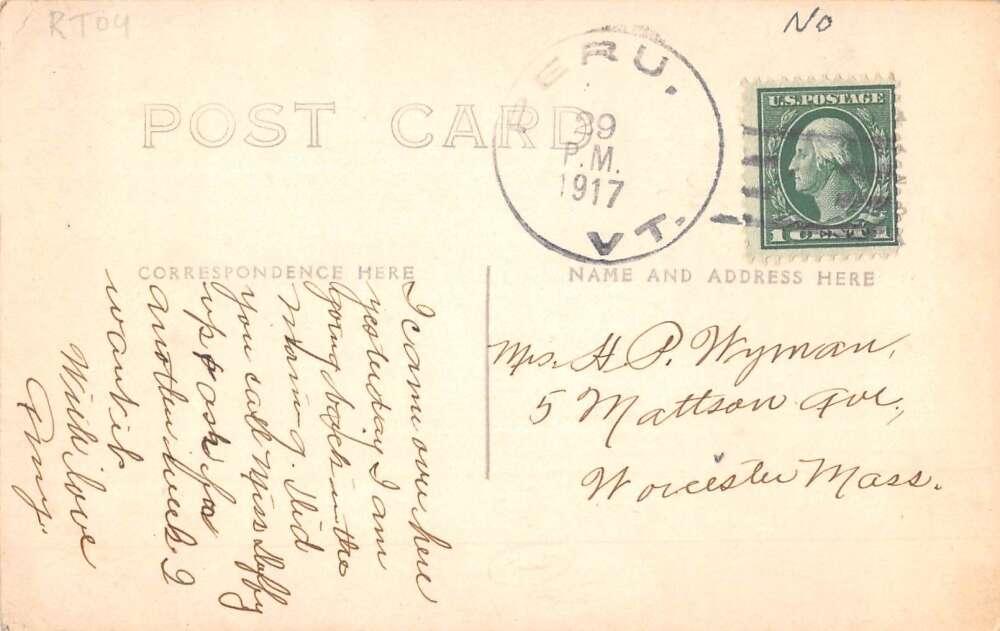 RT04
No
POST CARD
ERU.
29
P.M.
1917
VT.
U.S. POSTAGE
1 CENT 1
CORRESPONDENCE HERE
NAME AND ADDRESS HERE
I came over here
yesterday I am
going back in the
morning. Did
you call Miss
up & ask for
another week I
want it
With love
Amy.
Mrs. H. P. Wyman,
5 Mattson Ave.,
Worcester Mass.